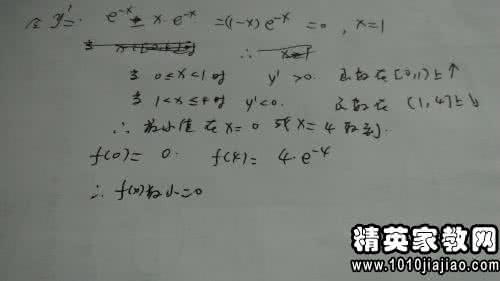 令 y' = e^{-x} - x·e^{-x} = (1-x)e^{-x} = 0 , x=1
当 ∴ x=1
当 0≤x<1时 y'>0. 函数在[0,1)上↑
当 1<x≤4时 y'<0. 函数在 (1,4]上↓
∴ 最小值在x=0或x=4取到.
f(0)= 0. f(4)= 4·e^{-4}
∴ f(x)最小=0
精英家教网
www.1010jiajiao.com